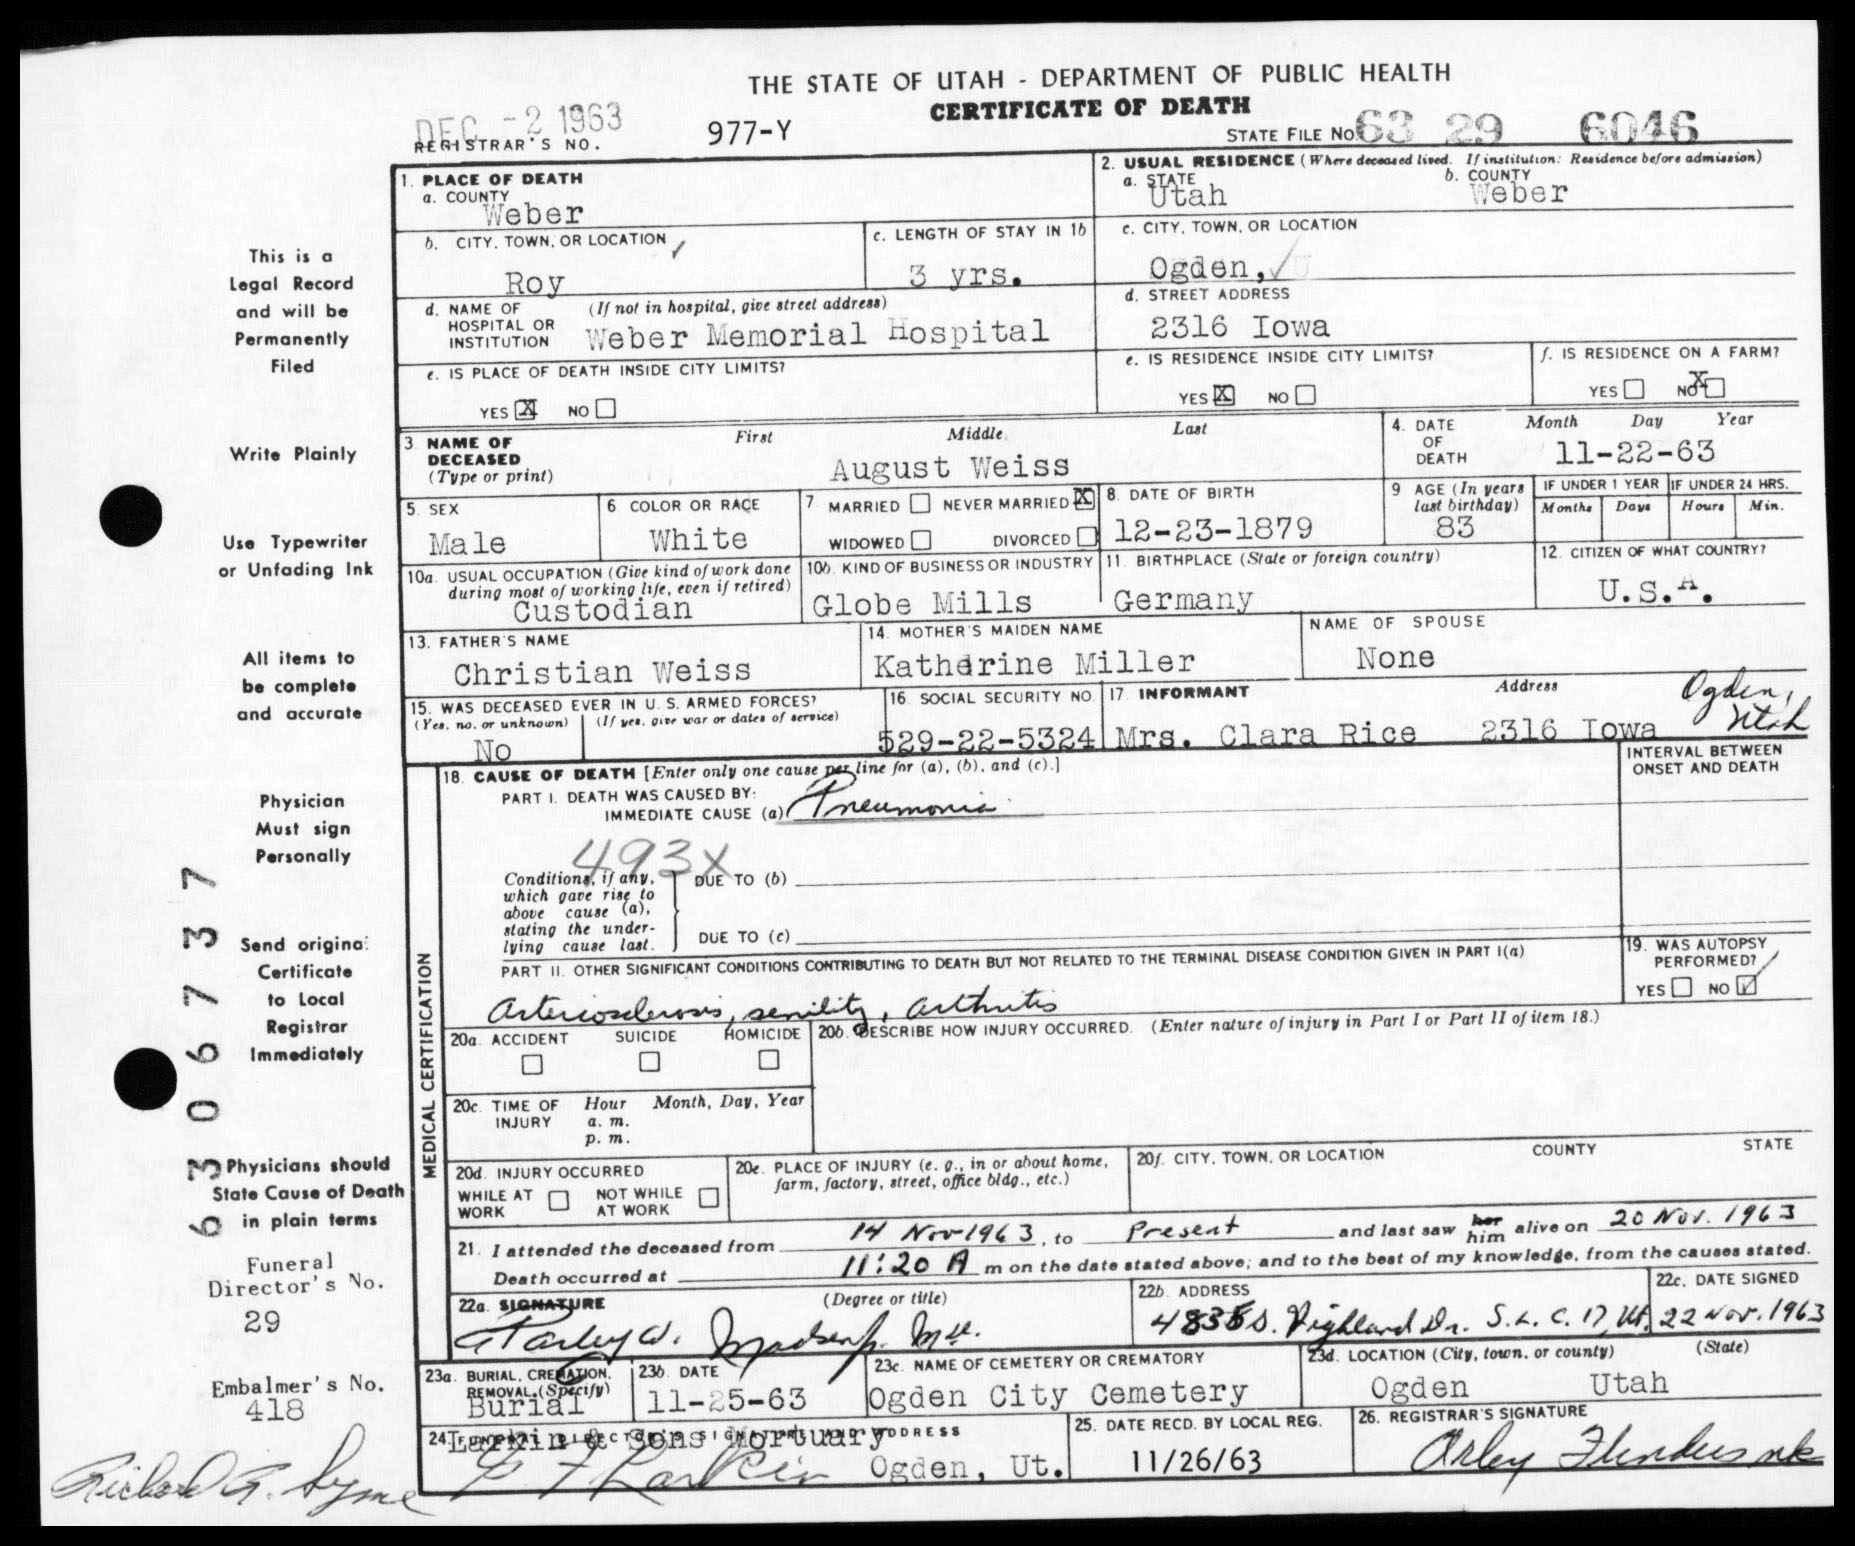 THE STATE OF UTAH - DEPARTMENT OF PUBLIC HEALTH
CERTIFICATE OF DEATH
DEC -2 1963
REGISTRAR'S NO. 977-Y
STATE FILE NO. 63 29 6046
1. PLACE OF DEATH
a. COUNTY
Weber
2. USUAL RESIDENCE (Where deceased lived. If institution: Residence before admission)
a. STATE b. COUNTY
Utah Weber
b. CITY, TOWN, OR LOCATION
Roy
c. LENGTH OF STAY IN 1b
3 yrs.
c. CITY, TOWN, OR LOCATION
Ogden,
d. NAME OF HOSPITAL OR INSTITUTION (If not in hospital, give street address)
Weber Memorial Hospital
d. STREET ADDRESS
2316 Iowa
e. IS PLACE OF DEATH INSIDE CITY LIMITS?
YES X NO
e. IS RESIDENCE INSIDE CITY LIMITS?
YES X NO
f. IS RESIDENCE ON A FARM?
YES NO X
3. NAME OF DECEASED (Type or print)
First Middle Last
August Weiss
4. DATE OF DEATH Month Day Year
11-22-63
5. SEX
Male
6 COLOR OR RACE
White
7 MARRIED NEVER MARRIED X
WIDOWED DIVORCED
8. DATE OF BIRTH
12-23-1879
9 AGE (In years last birthday)
83
IF UNDER 1 YEAR IF UNDER 24 HRS.
Months Days Hours Min.
10a. USUAL OCCUPATION (Give kind of work done during most of working life, even if retired)
Custodian
10b. KIND OF BUSINESS OR INDUSTRY
Globe Mills
11. BIRTHPLACE (State or foreign country)
Germany
12. CITIZEN OF WHAT COUNTRY?
U.S.A.
13. FATHER'S NAME
Christian Weiss
14. MOTHER'S MAIDEN NAME
Katherine Miller
NAME OF SPOUSE
None
15. WAS DECEASED EVER IN U. S. ARMED FORCES?
(Yes, no, or unknown) (If yes, give war or dates of service)
No
16. SOCIAL SECURITY NO.
529-22-5324
17. INFORMANT Address
Mrs. Clara Rice 2316 Iowa Ogden, Utah
MEDICAL CERTIFICATION
18. CAUSE OF DEATH [Enter only one cause per line for (a), (b), and (c).]
INTERVAL BETWEEN ONSET AND DEATH
PART I. DEATH WAS CAUSED BY:
IMMEDIATE CAUSE (a) Pneumonia
493X
Conditions, if any, which gave rise to above cause (a), stating the underlying cause last.
DUE TO (b)
DUE TO (c)
PART II. OTHER SIGNIFICANT CONDITIONS CONTRIBUTING TO DEATH BUT NOT RELATED TO THE TERMINAL DISEASE CONDITION GIVEN IN PART I(a)
Arteriosclerosis, senility, arthritis
19. WAS AUTOPSY PERFORMED?
YES NO
20a. ACCIDENT SUICIDE HOMICIDE
20b. DESCRIBE HOW INJURY OCCURRED. (Enter nature of injury in Part I or Part II of item 18.)
20c. TIME OF INJURY Hour Month, Day, Year
a. m.
p. m.
20d. INJURY OCCURRED
WHILE AT WORK NOT WHILE AT WORK
20e. PLACE OF INJURY (e. g., in or about home, farm, factory, street, office bldg., etc.)
20f. CITY, TOWN, OR LOCATION COUNTY STATE
21. I attended the deceased from 14 Nov 1963, to Present and last saw her him alive on 20 Nov. 1963
Death occurred at 11:20 A m on the date stated above; and to the best of my knowledge, from the causes stated.
22a. SIGNATURE (Degree or title)
Parley W. Madsen Jr. MD.
22b. ADDRESS
4835 S. Highland Dr. S.L.C. 17, Ut.
22c. DATE SIGNED
22 Nov. 1963
23a. BURIAL, CREMATION, REMOVAL, (Specify)
Burial
23b. DATE
11-25-63
23c. NAME OF CEMETERY OR CREMATORY
Ogden City Cemetery
23d. LOCATION (City, town, or county) (State)
Ogden Utah
24. FUNERAL DIRECTOR'S SIGNATURE AND ADDRESS
Larkin & Sons Mortuary
G F Larkin Ogden, Ut.
25. DATE RECD. BY LOCAL REG.
11/26/63
26. REGISTRAR'S SIGNATURE
This is a
Legal Record
and will be
Permanently
Filed
Write Plainly
Use Typewriter
or Unfading Ink
All items to
be complete
and accurate
Physician
Must sign
Personally
Send original
Certificate
to Local
Registrar
Immediately
Physicians should
State Cause of Death
in plain terms
63 06737
Funeral
Director's No.
29
Embalmer's No.
418
Richard G. Syme